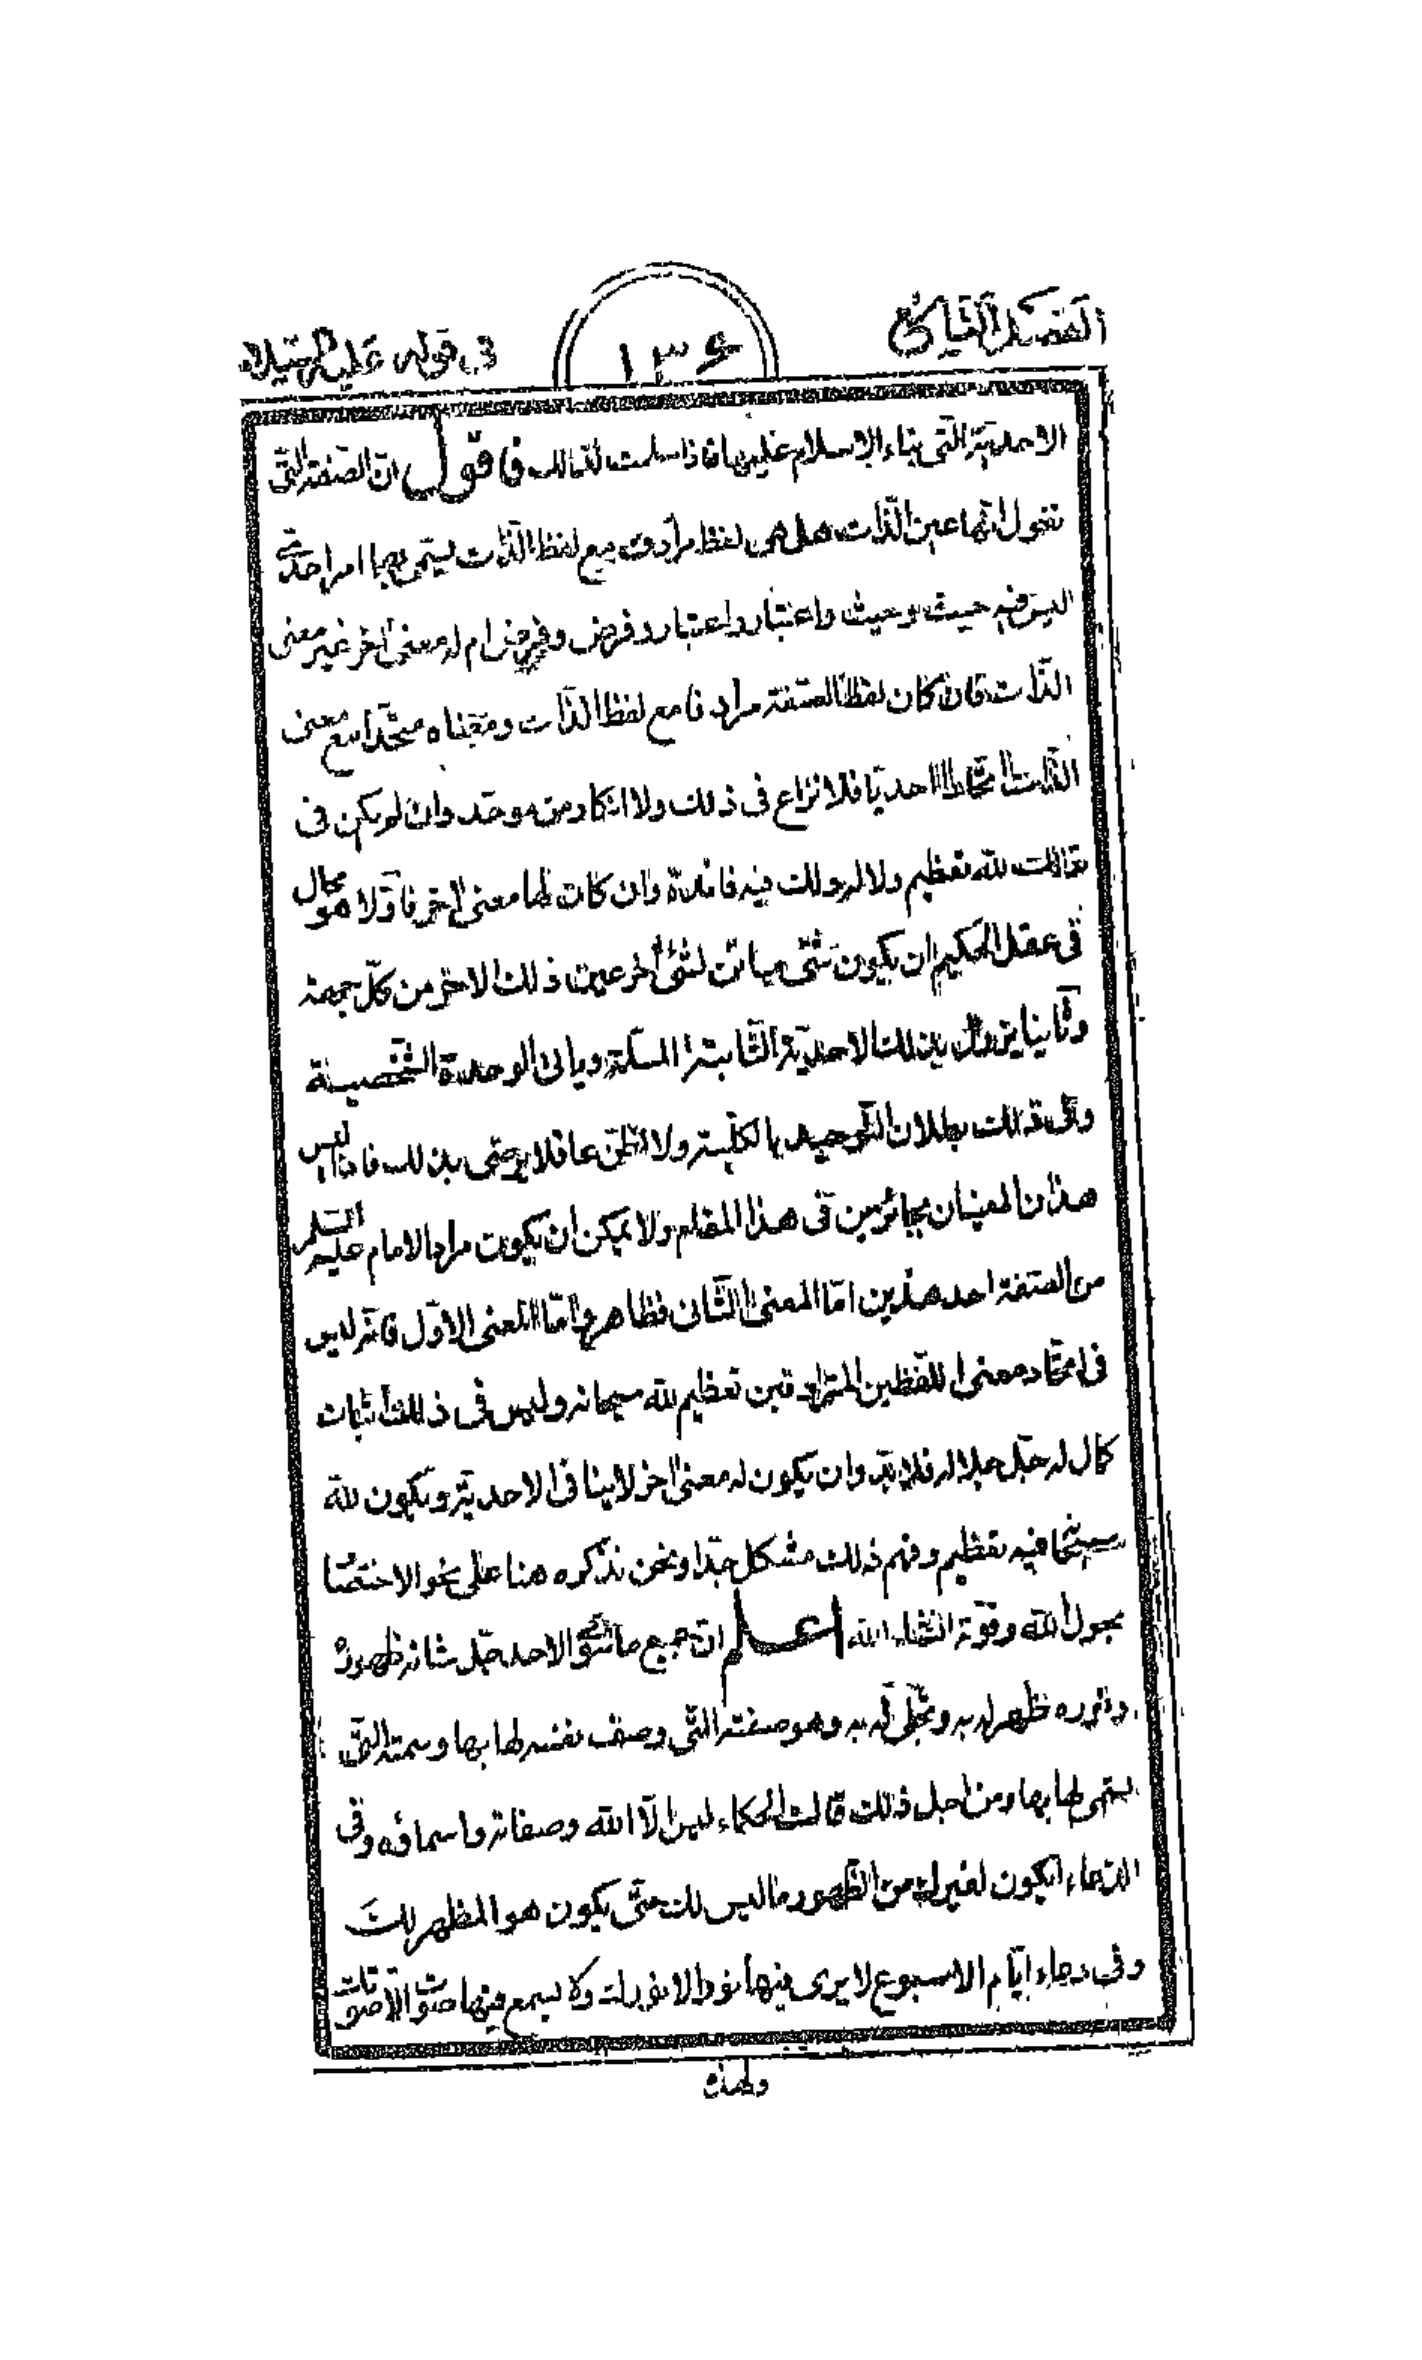 الفصل الثانى
١٣۶
فى قوله عليه السلام
الاحدية التى بناء الاسلام عليها فاذا سلمت لقالك فاقول ان الصفة التى
تقول انها عين الذات هل هى لفظ مرادف مع لفظ الذات يسمى بهما امر احدى
ليس فيه حيث وحيث واعتبار واعتبار وفرض وفرض ام له معنى آخر غير معنى
الذات فان كان لفظ الصفة مرادفا مع لفظ الذات ومعناه متحدا مع معنى
الذات اتحادا احديا فلا نزاع فى ذلك ولا انكار من موحد وان لم يكن فى
مقالك لله تعظيم ولا لقولك فيه فائدة وان كان لها معنى آخر فاولا هو محال
فى عقل الحكيم ان يكون شئ مباين لشئ آخر عين ذلك الآخر من كل جهة
وثانيا يزول بذلك الاحدية الثابتة المسلمة وياتى الوحدة الشخصية
وفى ذلك بطلان التوحيد بالكلية ولا اظن عاقلا يرضى بذلك فاذا ليس
هذان المعنيان بجائزين فى هذا المقام ولا يمكن ان يكون مراد الامام عليه السلم
من الصفة احد هذين اما المعنى الثانى فظاهر واما المعنى الاول فانه ليس
فى اتحاد معنى اللفظين المترادفين تعظيم لله سبحانه وليس فى ذلك اثبات
كمال له جل جلاله فلابد وان يكون له معنى آخر لاينافى الاحدية ويكون لله
سبحانه فيه تعظيم وفهم ذلك مشكل جدا ونحن نذكره هنا على نحو الاختصار
بحول الله وقوته انشاء الله اعلم ان جميع ما سوى الاحد جل شانه ظهوره
ونوره ظهر له به وتجلى له به وهو صفته التى وصف نفسه لها بها وسمته التى
يسمى لها بها ومن اجل ذلك قالت الحكماء ليس الا الله وصفاته واسماؤه وفى
الدعاء ايكون لغيرك من الظهور ما ليس لك حتى يكون هو المظهر لك
وفى دعاء ايام الاسبوع لا يرى فيها نور الا نورك ولا يسمع فيها صوت الا صوتك
ولهذا